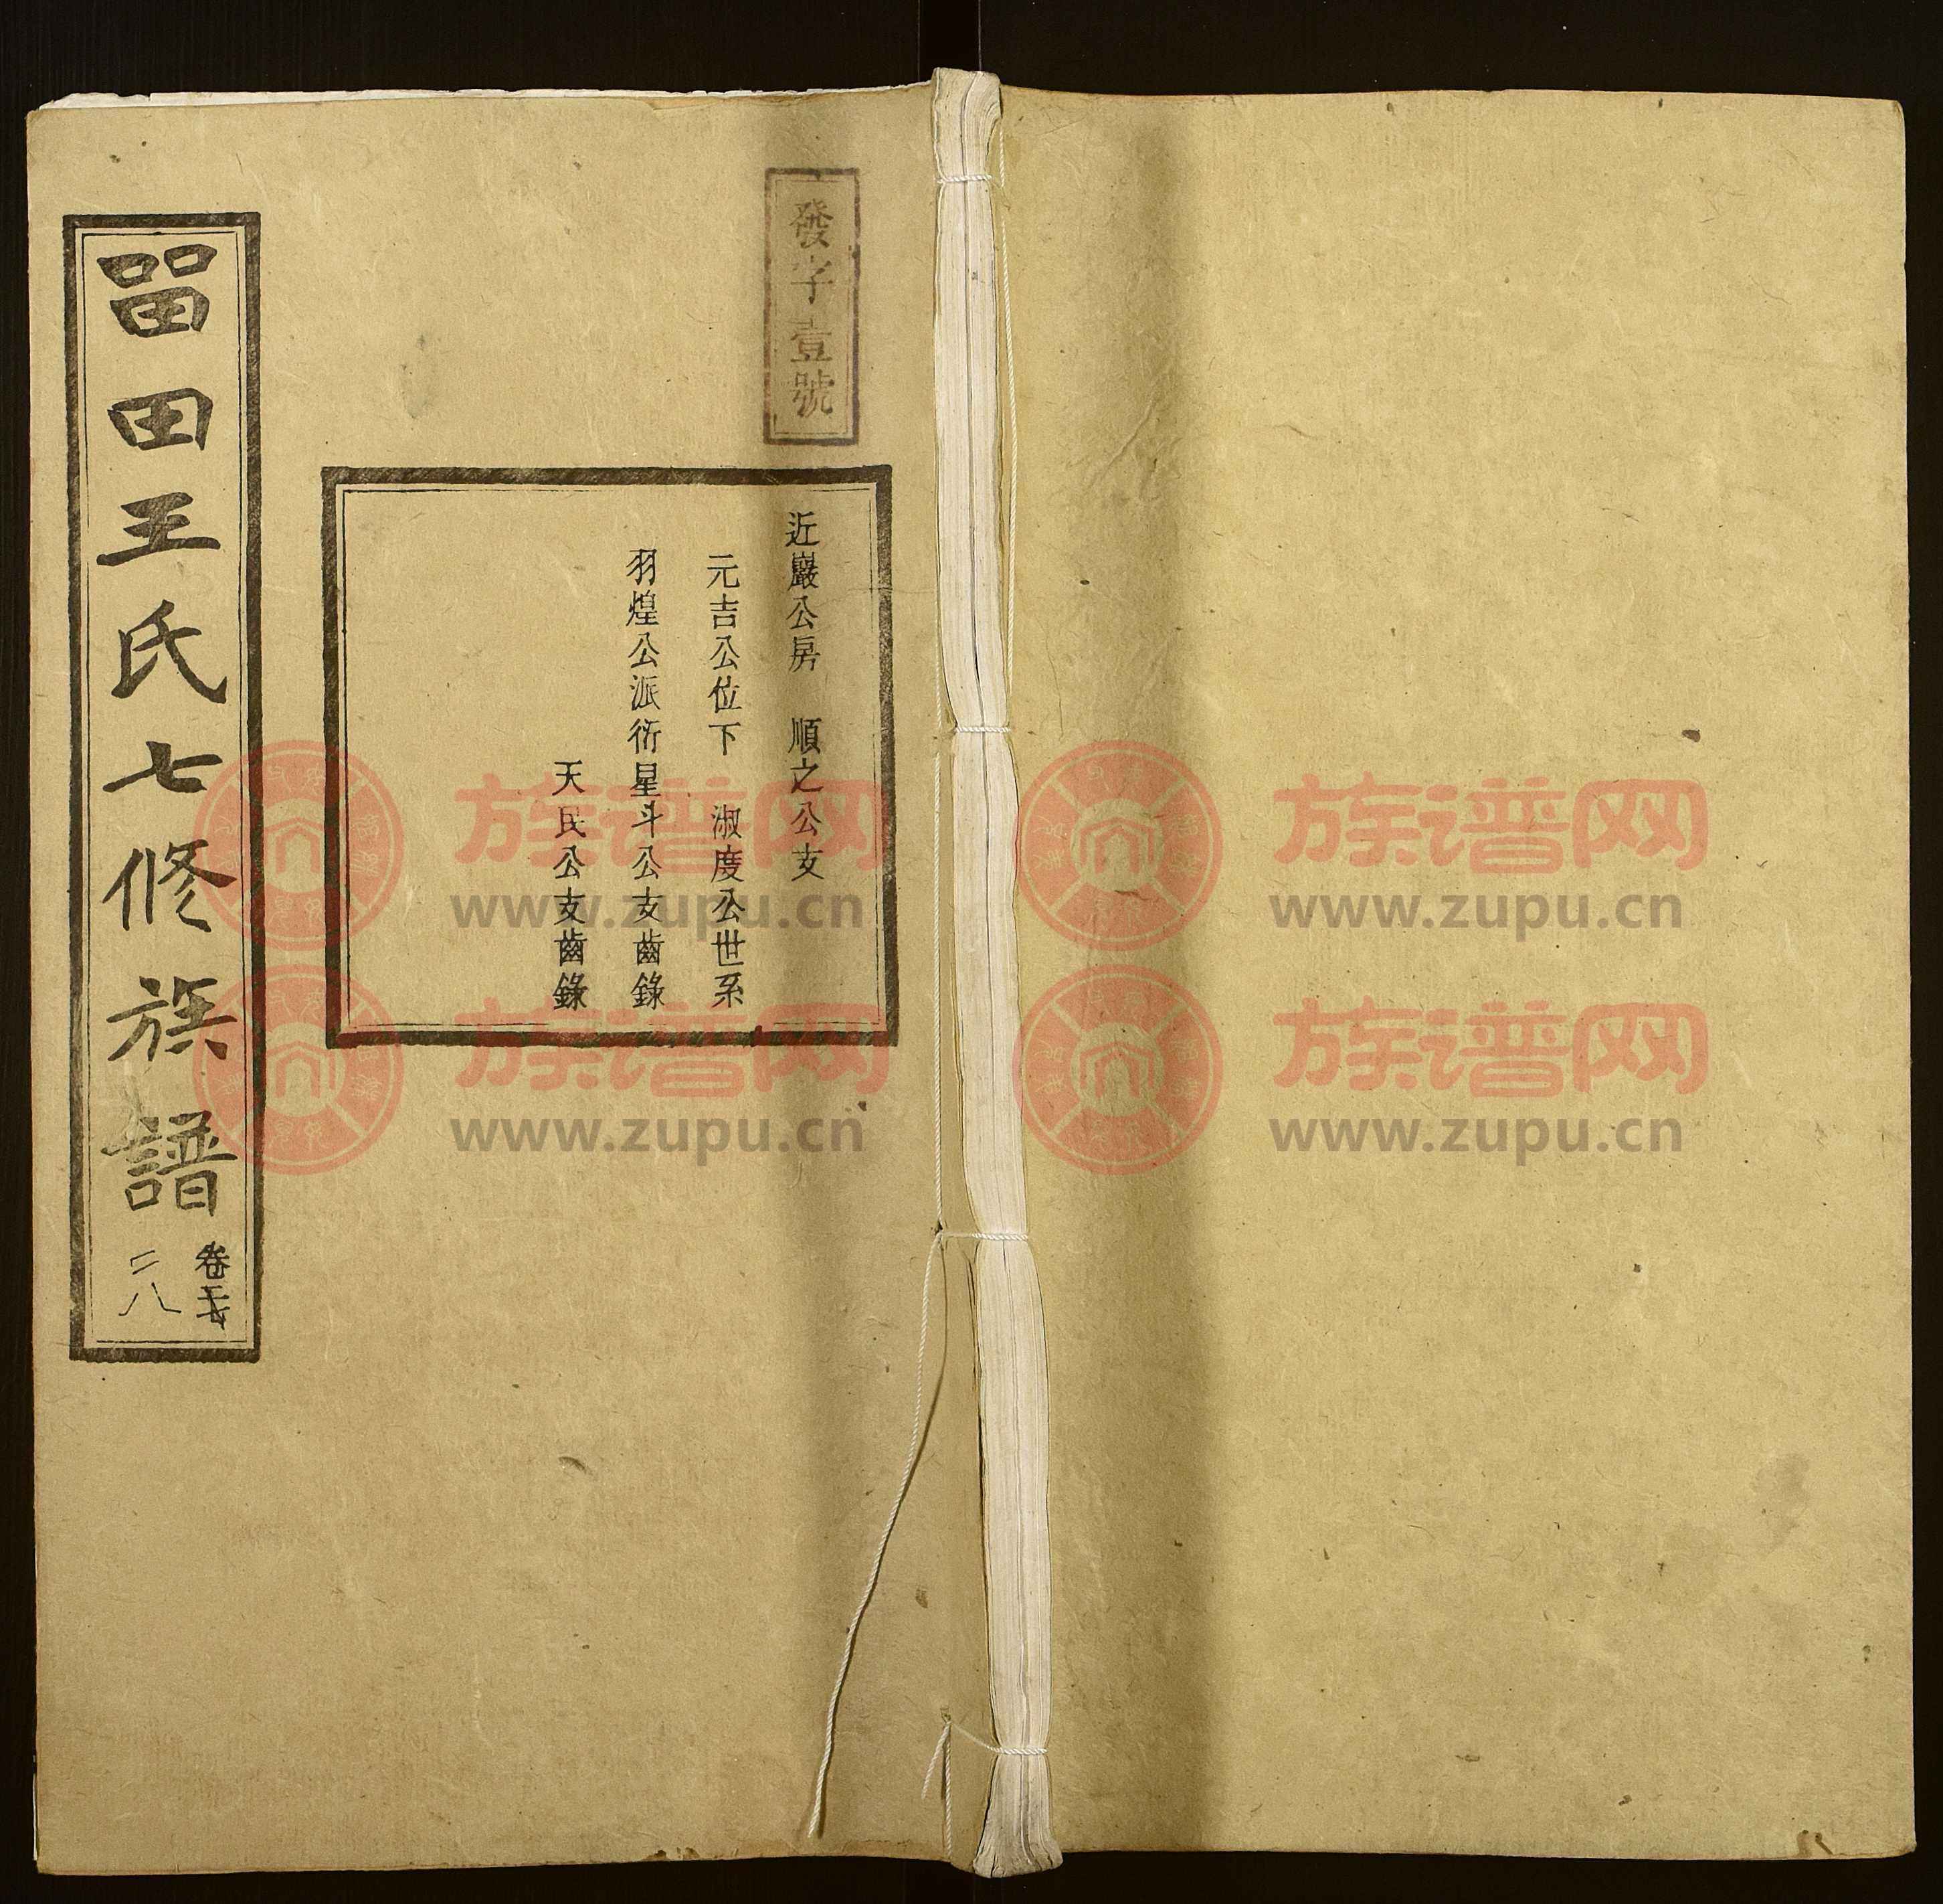 發字壹號
近巖公房　順之公支
元吉公位下　淑度公世系
羽煌公派衍星斗公支齒錄
天民公支齒錄
畱田王氏七修族譜
二八
族谱网
www.zupu.cn
族谱网
www.zupu.cn
族谱网
www.zupu.cn
族谱网
www.zupu.cn